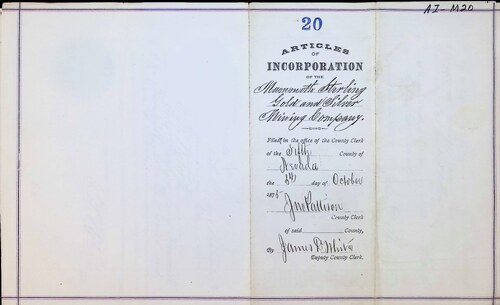 AI-M20
20
ARTICLES
OF
INCORPORATION
OF THE
Mammoth Sterling
Gold and Silver
Mining Company.
Filed in the office of the County Clerk
of the Fifth County of
Nevada
the 5th day of October
1875
Jno Pattison
County Clerk
of said County,
By James D. White
Deputy County Clerk.